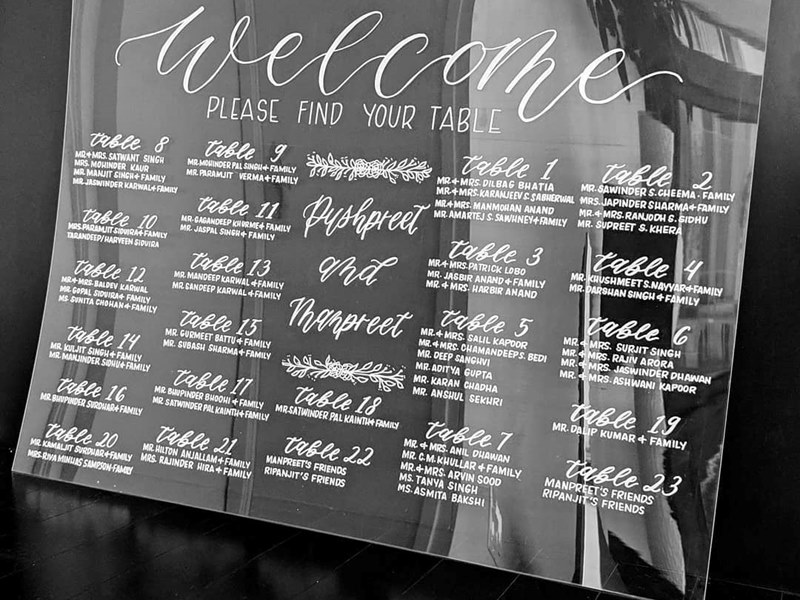 welcome
PLEASE FIND YOUR TABLE
table 8
MR.+MRS. SATWANT SINGH
MRS. MOHINDER KAUR
MR. MANJIT SINGH+FAMILY
MR. JASWINDER KARWAL+FAMILY
table 10
MRS. PARAMJIT SIDVIRA+FAMILY
TARANDEEP/HARVEEN SIDVIRA
table 12
MR.+MRS. BALDEV KARWAL
MR. GOPAL SIDVIRA+FAMILY
MS. SUNITA CHOHAN+FAMILY
table 14
MR. KULJIT SINGH+FAMILY
MR. MANJINDER SIDHU+FAMILY
table 16
MR. BHUPINDER SURDHAR+FAMILY
table 20
MR. KAMALJIT SURDHAR+FAMILY
MRS. RIYA SAMPSON FAMILY
table 9
MR. MOHINDER PAL SINGH+FAMILY
MR. PARAMJIT VERMA+FAMILY
table 11
MR. GAGANDEEP KHURME+FAMILY
MR. JASPAL SINGH+FAMILY
table 13
MR. MANDEEP KARWAL+FAMILY
MR. SANDEEP KARWAL+FAMILY
table 15
MR. GURMEET BATTU+FAMILY
MR. SUBASH SHARMA+FAMILY
table 17
MR. BHUPINDER BHOOHI+FAMILY
MR. SATWINDER PAL KAINTH+FAMILY
table 21
MR. HILTON ANJALLAM+FAMILY
MRS. RAJINDER HIRA+FAMILY
Pushpreet
and
Manpreet
table 18
MR. SATWINDER PAL KAINTH+FAMILY
table 22
MANPREET'S FRIENDS
RIPANJIT'S FRIENDS
table 1
MR.+MRS. DILBAG BHATIA
MR.+MRS. KARANJEEV S. SABHERWAL
MR.+MRS. MANMOHAN ANAND
MR. AMARTEJ S. SAWHNEY+FAMILY
table 3
MR.+MRS. PATRICK LOBO
MR. JASBIR ANAND+FAMILY
MR.+MRS. HARBIR ANAND
table 5
MR.+MRS. SALIL KAPOOR
MR.+MRS. CHAMANDEEP S. BEDI
MR. DEEP SANGHVI
MR. ADITYA GUPTA
MR. KARAN CHADHA
MR. ANSHUL SEKHRI
table 7
MR.+MRS. ANIL DHAWAN
MR. C.M. KHULLAR+FAMILY
MR.+MRS. ARVIN SOOD
MS. TANYA SINGH
MS. ASMITA BAKSHI
table 2
MR. SAWINDER S. CHEEMA. FAMILY
MRS. JAPINDER SHARMA+FAMILY
MR.+MRS. RANJODH G. GIDHU
MR. SUPREET S. KHERA
table 4
MR. KHUSHMEET S. NAYYAR+FAMILY
MR. DARSHAN SINGH+FAMILY
table 6
MR.+MRS. SURJIT SINGH
MR.+MRS. RAJIV ARORA
MR.+MRS. JASWINDER DHAWAN
MR.+MRS. ASHWANI KAPOOR
table 19
MR. DALIP KUMAR+FAMILY
table 23
MANPREET'S FRIENDS
RIPANJIT'S FRIENDS